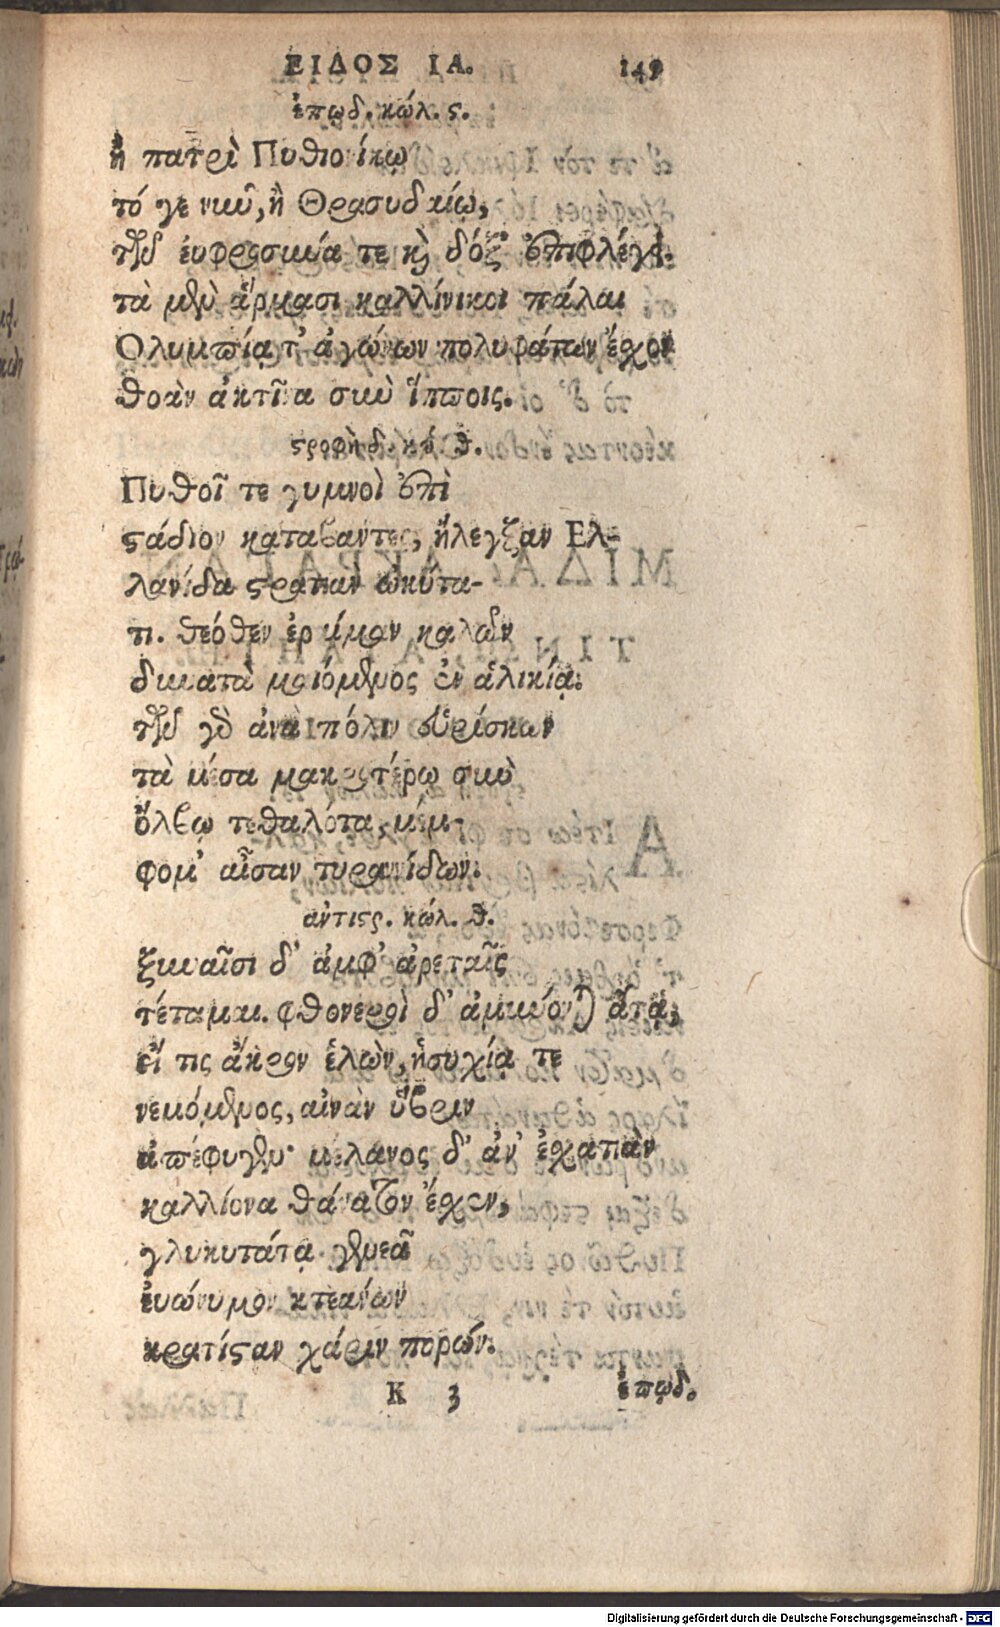 ΕΙΔΟΣ ΙΑ. 149
ἐπῳδ. κώλ. ϛ.
ἢ πατρὶ Πυθιονίκῳ
τό γε νιῦ, ἢ Θρασυδαίῳ,
τῶν ἐυφροσιύα τε κὶ δόξ' ἐπιφλέγει.
τὰ μὲν ἅρμασι καλλίνικοι πάλαι
Ολυμπίᾳ τ' ἀγώνων πολυφάτων ἔχον
θοὰν ἀκτῖνα σιὺ ἵπποις.
ϛροφὴ δ. κώ. θ.
Πυθοῖ τε γυμνοὶ ἐπὶ
ϛάδιον καταβαντες, ἤλεγξαν Ελ-
λανίδα ϛρατιαν ὠκύτα-
τι. θεόθεν ἐραίμαν καλῶν
διωατὰ μαιόμενος ἐν ἁλικίᾳ.
τῶν γὸ ἀνὰ πόλιν εὑρίσκων
τὰ μέσα μακροτέρῳ σιὺ
ὄλβῳ τεθαλότα, μέμ-
φομ' αἶσαν τυραννίδων.
αντιϛ. κώλ. θ.
ξιωαῖσι δ' ἀμφ' ἀρεταῖς
τέταμαι. φθονεροὶ δ' ἀμιύονται ἄτᾳ,
εἴ τις ἄκρον ἑλὼν, ἡσυχίᾳ τε
νεμόμενος, αἰνὰν ὕβριν
ἀπέφυγεν· μέλανος δ' ἀν' ἐχατιὰν
καλλίονα θάνατον ἔχεν,
γλυκυτάτᾳ γενεᾷ
ἐυώνυμον κτεάνων
κρατίϛαν χάριν πορών.
Κ 3 ἐπῳδ.
Digitalisierung gefördert durch die Deutsche Forschungsgemeinschaft - DFG